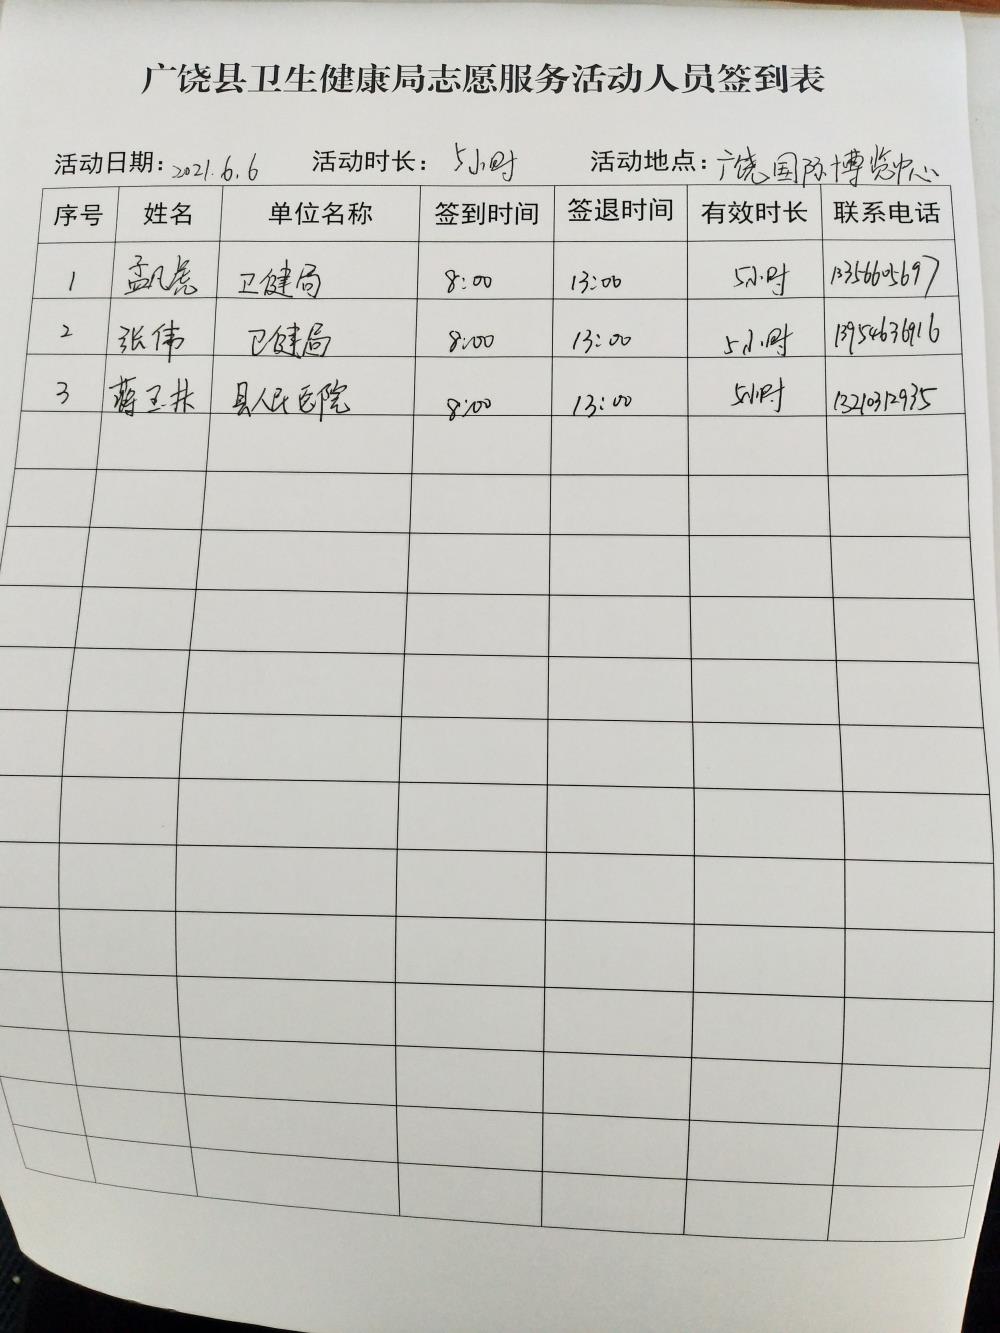 广饶县卫生健康局志愿服务活动人员签到表
活动日期：2021.6.6 活动时长：5小时 活动地点：广饶国际博览中心
序号 姓名 单位名称 签到时间 签退时间 有效时长 联系电话
1 孟凡虎 卫健局 8:00 13:00 5小时 13566605697
2 张伟 卫健局 8:00 13:00 5小时 13954636916
3 蒋玉林 县人民医院 8:00 13:00 5小时 13210312935